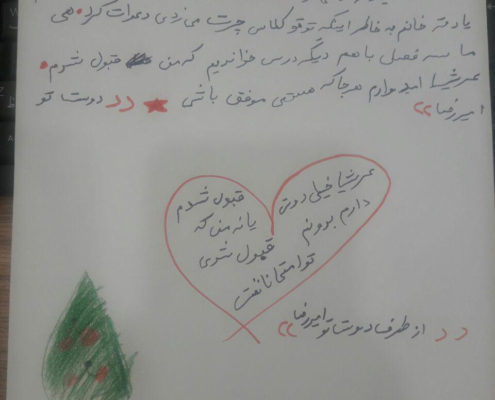 یادته خانم به خاطر اینکه تو کلاس چرت می زدی دعوات کرد هی
ما سه فصل با هم دیگه درس خواندیم که من قبول شدم
عرشیا امیدوارم هر جا که هستی موفق باشی دوست تو
امیررضا
عرشیا خیلی دوست
دارم بدونم
قبول شدم
یا نه من که
قبول شدی
تو امتحاناتت
از طرف دوست تو امیررضا